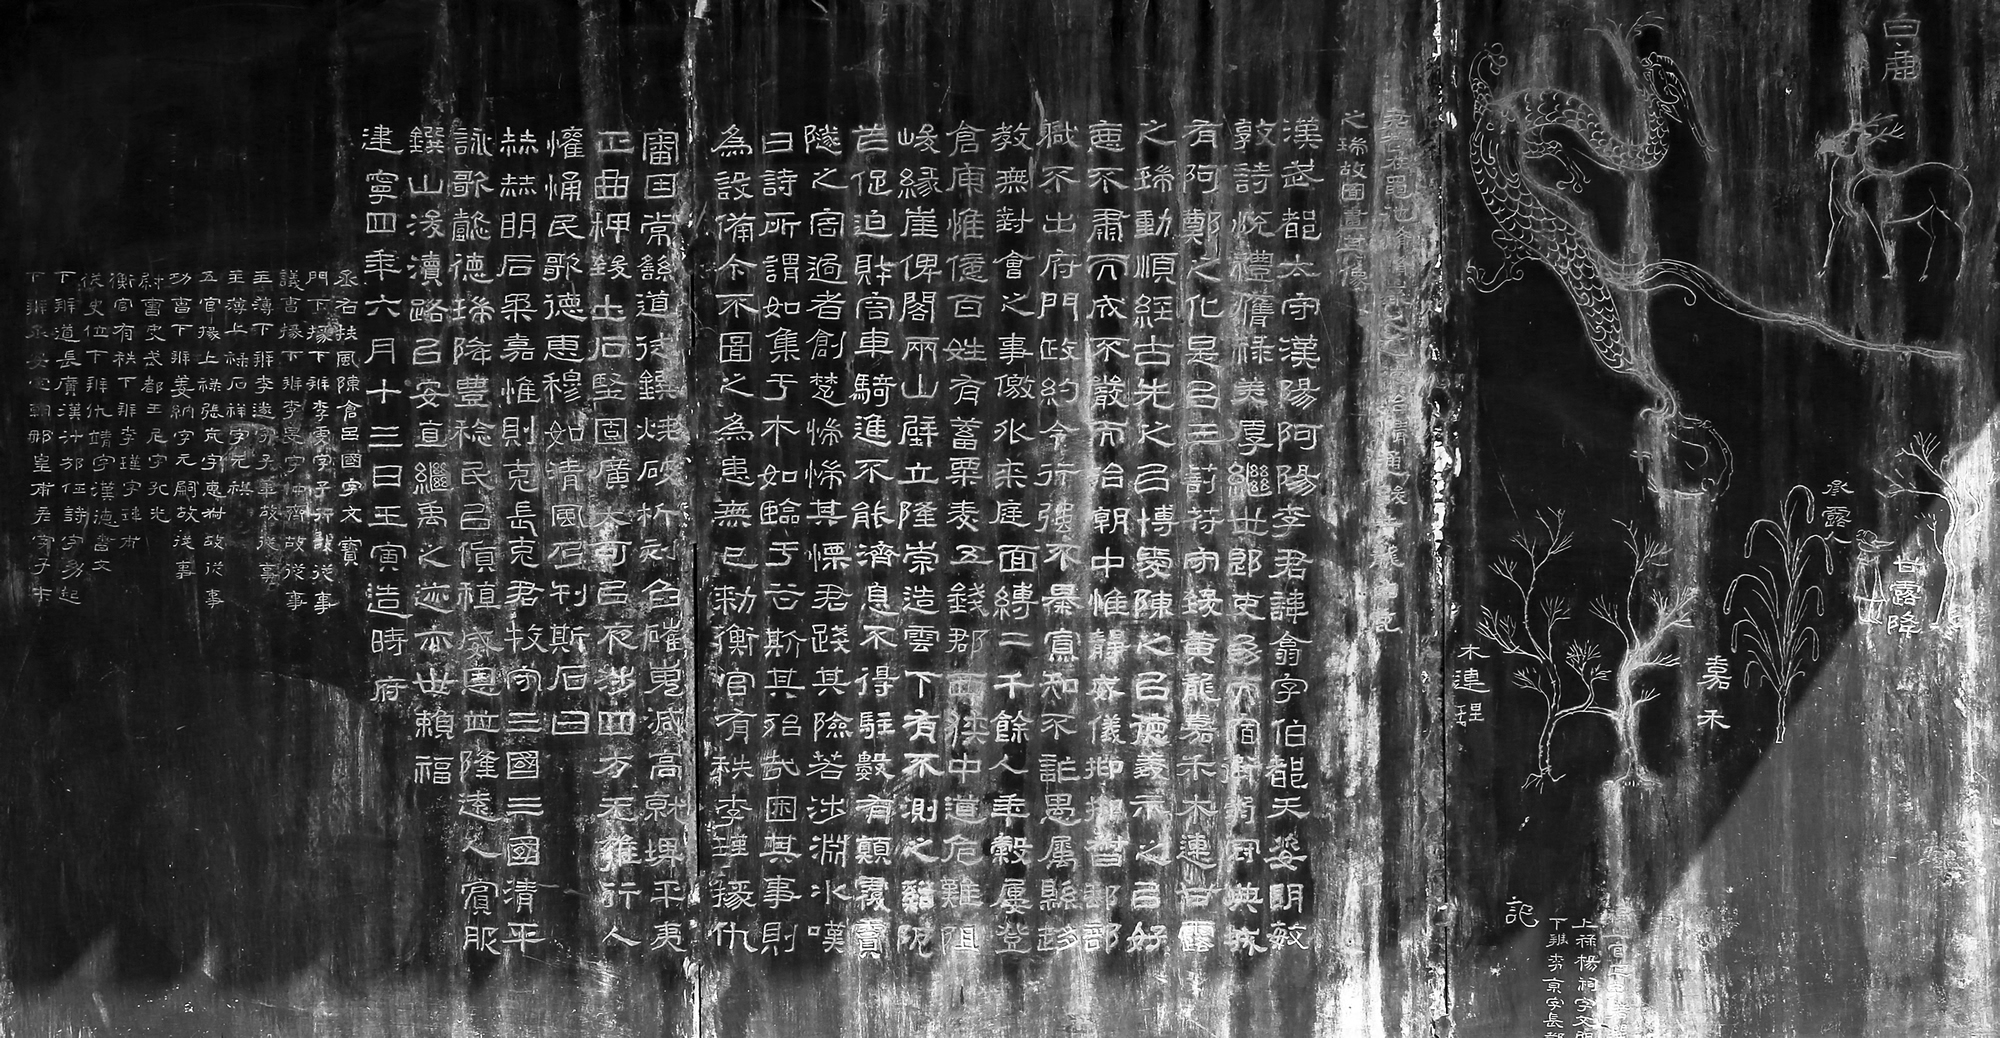 白鹿
甘露降
承露人
嘉禾
木連理
上祿楊嗣字文明
下辨李京字長都
記
君昔在黽池脩崤嶔之道德治精通致黃龍白鹿
之瑞故圖畫其像
漢武都太守漢陽阿陽李君諱翕字伯都天姿明敏
敦詩悅禮膺祿美厚繼世郎吏幼而宿衛弱冠典城
有阿鄭之化是以三剖符守致黃龍嘉禾木連甘露
之瑞動順經古先之以博愛陳之以德義示之以好
惡不肅而成不嚴而治朝中惟靜威儀抑抑督郵部
職不出府門政約令行強不暴寡知不詐愚屬縣趍
教無對會之事徼外來庭面縛二千餘人年穀屢登
倉庾惟億百姓有蓄粟麥五錢郡西狹中道危難阻
峻緣崖俾閣兩山壁立隆崇造雲下有不測之谿阨
芒促迫財容車騎進不能濟息不得駐數有顛覆霣
隧之害過者創楚惴惴其慄君踐其險若涉淵冰嘆
曰詩所謂如集于木如臨于谷斯其殆哉困其事則
為設備今不圖之為患無已勑衡官有秩李瑾掾仇
審因常繇道徒鐉燒破析刻臽磪嵬減高就埤平夷
正曲柙致土石堅固廣大可以夜涉四方无雍行人
懽悀民歌德惠穆如清風乃刊斯石曰
赫赫明后柔嘉惟則克長克君牧守三國三國清平
詠歌懿德瑞降豐稔民以貨稙威恩並隆遠人賓服
鐉山浚瀆路以安直繼禹之迹亦世賴福
建寧四年六月十三日壬寅造時府
丞右扶風陳倉呂國字文寶
門下掾下辨李虔字子行故從事
議曹掾下辨李旻字仲齊故從事
主簿下辨李遂字子華故從事
主簿上祿石祥字元祺
五官掾上祿張亢字惠叔故從事
功曹下辨姜納字元嗣故從事
尉曹史武都王尼字孔光
衡官有秩下辨李瑾字瑋甫
從史位下辨仇靖字漢德書文
下辨道長廣漢汁邡任詩字幼起
下辨丞安定朝那皇甫彥字子才